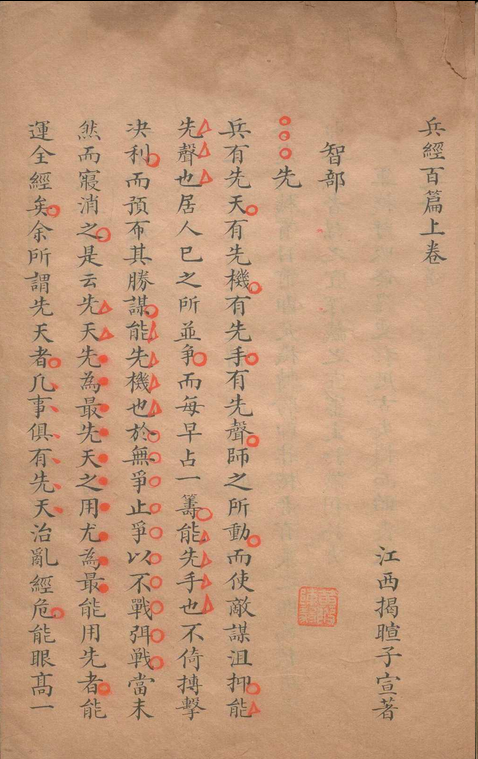 兵經百篇上卷
江西揭暄子宣著
智部
先
兵有先天有先機有先手有先聲師之所動而使敵謀沮抑能
先聲也居人巳之所並爭而每早占一籌能先手也不倚摶擊
决利而預布其勝謀能先機也於無爭止爭以不戰弭戰當未
然而寢消之是云先天先為最先天之用尤為最能用先者能
運全經矣余所謂先天者凢事俱有先天治亂經危能眼髙一